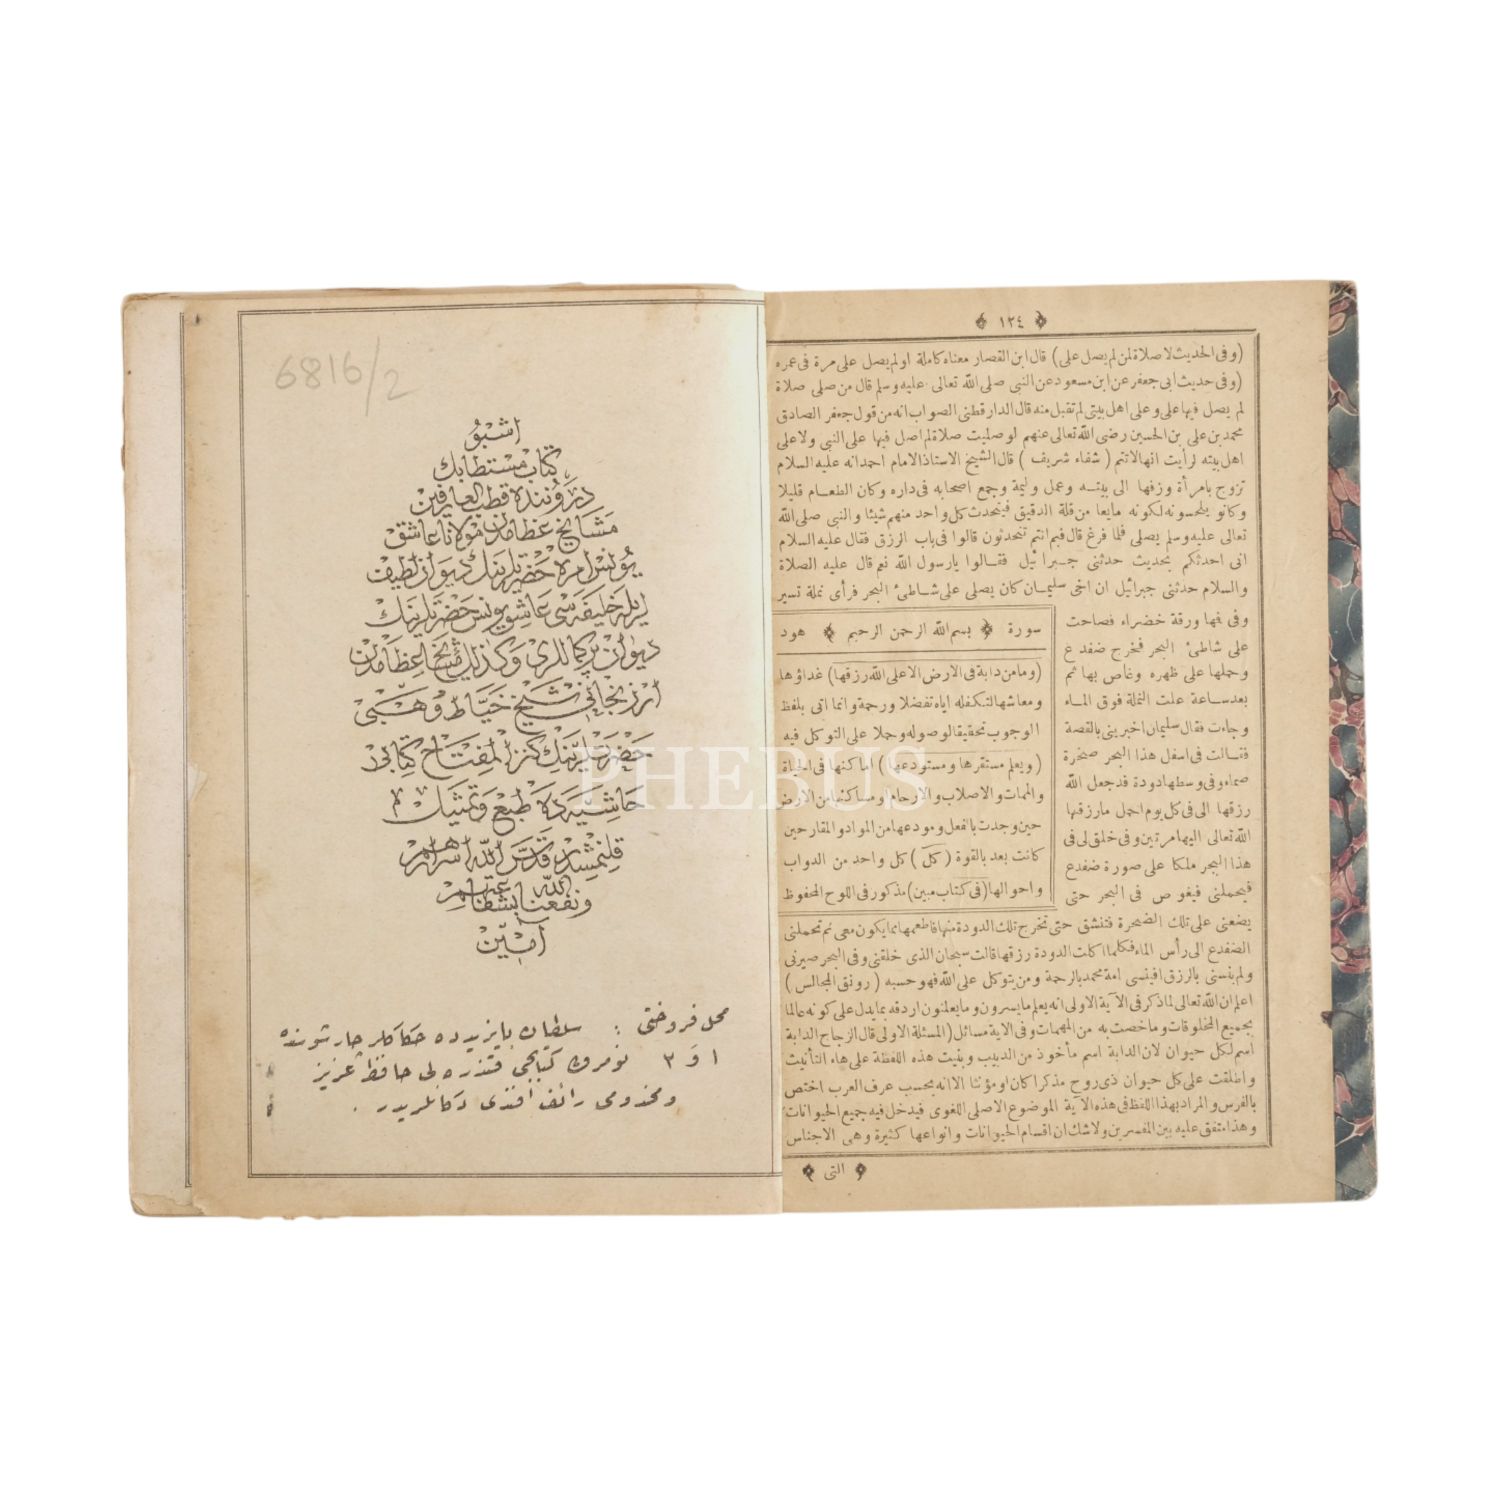 ﴿ ١٢٤ ﴾
(وفى الحديث لا صلاة لمن لم يصل على) قال ابن القصار معناه كاملة او لم يصل على مرة فى عمره
(وفى حديث ابى جعفر عن ابن مسعود عن النبى صلى الله تعالى عليه وسلم قال من صلى صلاة
لم يصل فيها على وعلى اهل بيتى لم تقبل منه قال الدارقطنى الصواب انه من قول جعفر الصادق
محمد بن على بن الحسين رضى الله تعالى عنهم لو صليت صلاة لم اصل فيها على النبى ولا على
اهل بيته لرأيت انها لا تتم (شفاء شريف) قال الشيخ الاستاذ الامام احمد انه عليه السلام
تزوج بامرأة وزفها الى بيته وعمل وليمة وجمع اصحابه فى داره وكان الطعام قليلا
وكانو يلحسونه لكونه مايعا من قلة الدقيق فيتحدث كل واحد منهم شيئا والنبى صلى الله
تعالى عليه وسلم يصلى فلما فرغ قال فبم انتم تتحدثون قالوا فى باب الرزق فقال عليه السلام
انى احدثكم بحديث حدثنى جبرائيل فقالوا يا رسول الله نعم قال عليه الصلاة
والسلام حدثنى جبرائيل ان اخى سليمان كان يصلى على شاطئ البحر فرأى نملة تسير
وفى فمها ورقة خضراء فصاحت
على شاطئ البحر فخرج ضفدع
وحملها على ظهره وغاص بها ثم
بعد ساعة علت النملة فوق الماء
وجاءت فقال سليمان اخبرينى بالقصة
فقالت فى اسفل هذا البحر صخرة
صماء وفى وسطها دودة قد جعل الله
رزقها الى فى كل يوم احمل ما رزقها
الله تعالى اليها مرتين وفى خلق لى فى
هذا البحر ملكا على صورة ضفدع
فيحملنى فيغوص فى البحر حتى
سورة ﴿ بسم الله الرحمن الرحيم ﴾ هود
(وما من دابة فى الارض الا على الله رزقها) غداؤها
ومعاشها لتكفله اياه تفضلا ورحمة وانما اتى بلفظ
الوجوب تحقيقا لوصوله وحملا على التوكل فيه
(ويعلم مستقرها ومستودعها) اماكنها فى الحياة
والممات والاصلاب والارحام او مساكنها من الارض
حين وجدت بالفعل ومودعها من المواد والمقار حين
كانت بعد بالقوة (كل) كل واحد من الدواب
واحوالها (فى كتاب مبين) مذكور فى اللوح المحفوظ
يضعنى على تلك الصخرة فتنشق حتى تخرج تلك الدودة منها فاطعمها بما يكون معى ثم تحملنى
الضفدع الى رأس الماء فكلما اكلت الدودة رزقها قالت سبحان الذى خلقنى وفى البحر صيرنى
ولم ينسنى بالرزق افينسى امة محمد بالرحمة ومن يتوكل على الله فهو حسبه (رونق المجالس)
اعلم ان الله تعالى لما ذكر فى الآية الاولى انه يعلم ما يسرون وما يعلنون اردفه بما يدل على كونه عالما
بجميع المخلوقات وما خصت به من المهمات وفى الاية مسائل (المسئلة الاولى قال الزجاج الدابة
اسم لكل حيوان لان الدابة اسم مأخوذ من الدبيب وبنيت هذه اللفظة على هاء التأنيث
واطلقت على كل حيوان ذى روح مذكرا كان او مؤنثا الا انه بحسب عرف العرب اختص
بالفرس والمراد بهذا اللفظ فى هذه الآية الموضوع الاصلى اللغوى فيدخل فيه جميع الحيوانات
وهذا متفق عليه بين المفسرين ولا شك ان اقسام الحيوانات وانواعها كثيرة وهى الاجناس
﴿ التى ﴾
6816/2
اشبو
كتاب مستطابك
درونده قطب العارفين
مشايخ عظامدن مولانا عاشق
يونس امره حضرتلرينك ديوان لطيف
ايله خليفه سى عاشق يونس حضرتلرينك
ديوان پركماللرى وكذلك مشايخ عظامدن
ارزنجانى شيخ خياط وهبى
حضرتلرينك كنز المفتاح كتابى
حاشيه ده طبع وتمثيل
قلنمشدر قدس الله اسرارهم
ونفعنا الله بشفاعتهم
آمين
محل فروختى : سلطان بايزيدده حكاكلر چارشوسنده
١ و ٣ نومرولى كتابجى قندره لى حافظ عزيز
ومخدومى رائف افندى دكانلريدر .
PHEBUS